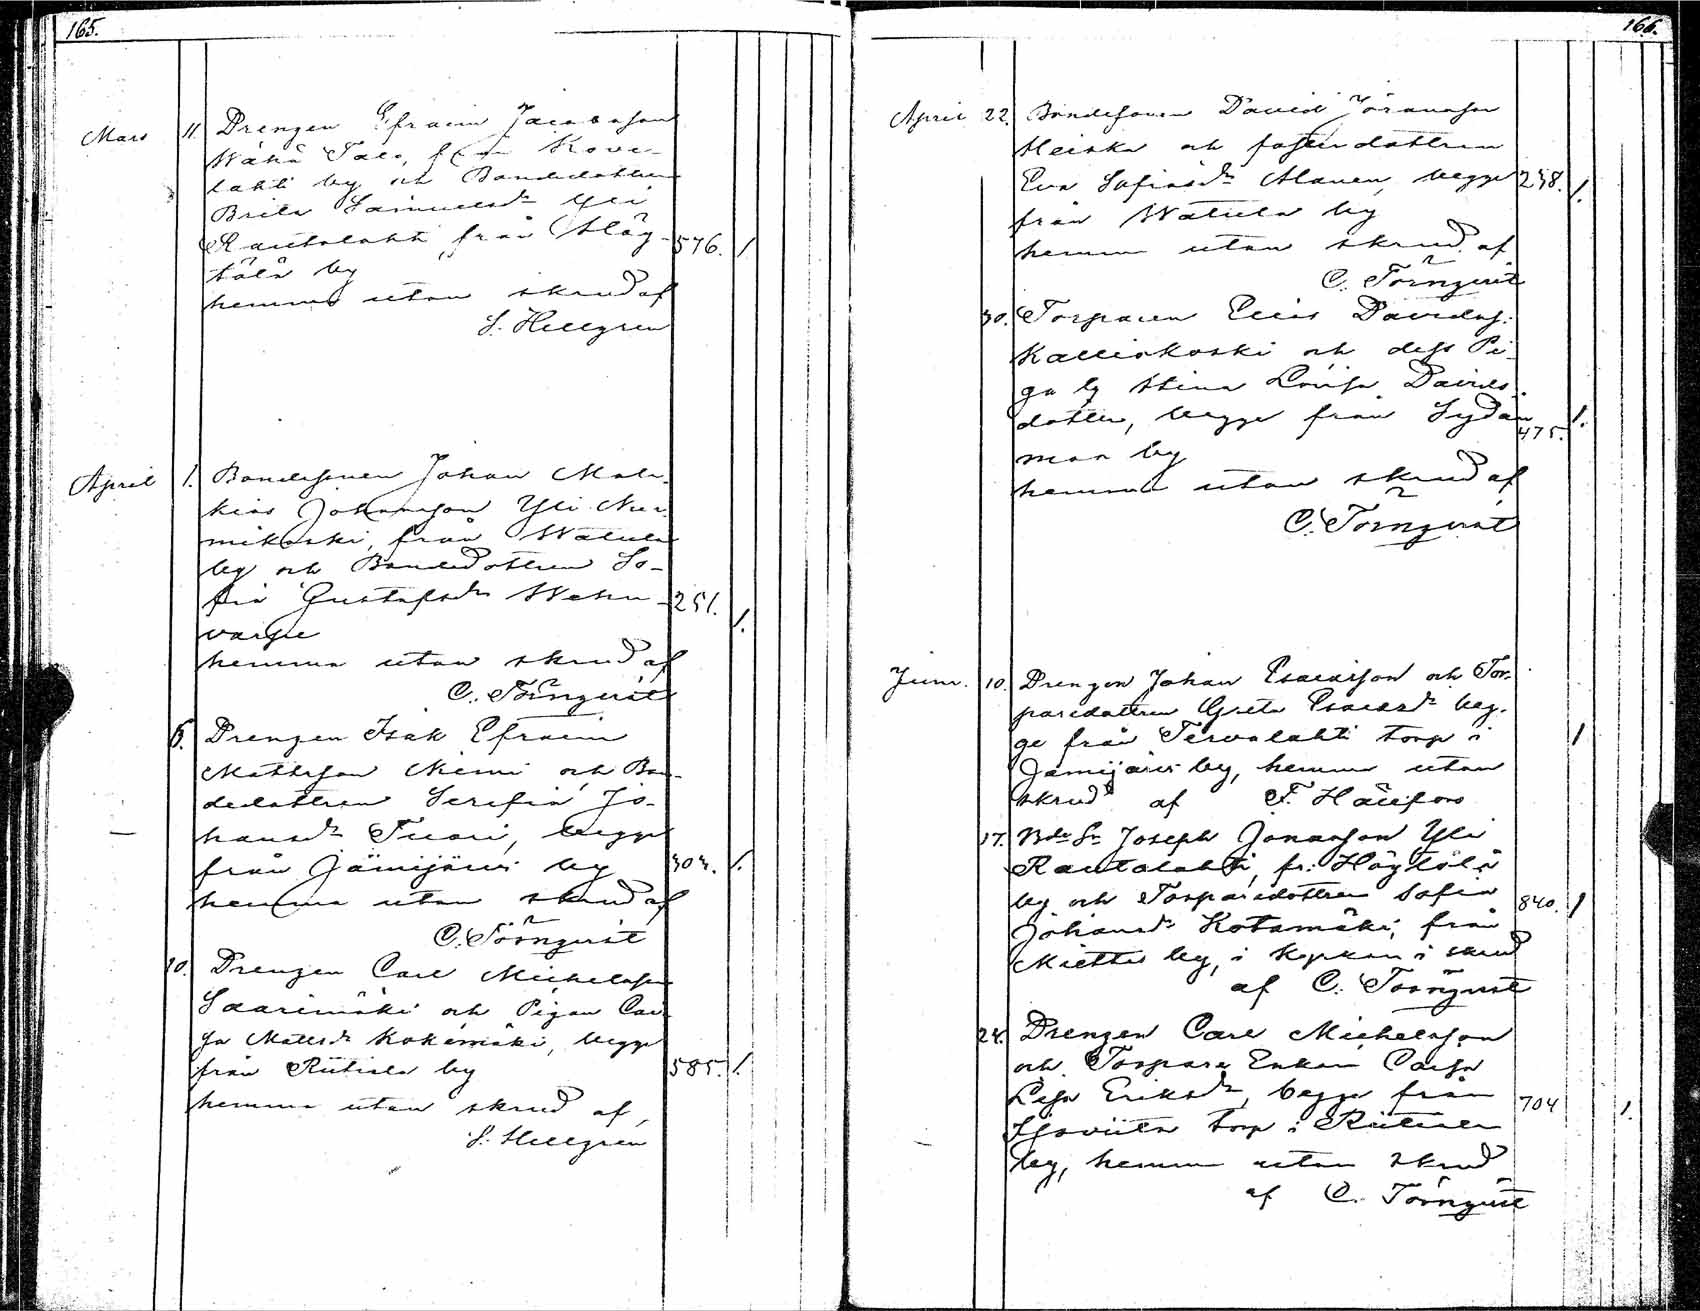 165.
Mars 11. Drengen Efraim Jacobsson
Wähä Talo, från Kove-
lahti by och Bondedottren
Brita Samuelsdr Yli
Rautalahti, från Hög- 576. 1
tölä by
hemma utan skrud af
S. Hellgren
April 1. Bondesonen Johan Mala-
kias Johansson Yli Nur-
mikoski, från Watula
by och Bondedottren So-
fia Gustafsdr Wehu- 251. 1.
varpe
hemma utan skrud af
C. Törnqvist
6. Drengen Isak Efraim
Mattsson Niemi och Bon-
dedottren Serafia Jo-
hansdr Tuori, begge
från Jämijärvi by 303. 1.
hemma utan skrud af
C. Törnqvist
10. Drengen Carl Michelsson
Saarimäki och Pigan Cai-
sa Mattsdr Kokemäki, begge
från Riitiala by 585. 1.
hemma utan skrud af
S. Hellgren
166.
April 22. Bondesonen David Göransson
Heiska och fosterdottren
Eva Sofiasdr Alanen, begge 238. 1.
från Watula by
hemma utan skrud af
C. Törnqvist
30. Torparen Elias Davidss:
Kalliokoski och dess Pi-
ga Stina Lovisa Davids-
dotter, begge från Sydän 1.
maa by 475.
hemma utan skrud af
C. Törnqvist
Juni. 10. Drengen Johan Esaiasson och Tor-
paredottren Greta Esaiasdr beg-
ge från Tervalahti torp i 1
Jämijärvi by, hemma utan
skrud af F. Hällfors
17. Bde Sn Joseph Johansson Yli
Rautalahti, fr: Högtölä
by och Torparedottren Sofia 840. 1
Johansdr Kotamäki, från
Miettu by, i kyrkan i skrud
af C. Törnqvist
24. Drengen Carl Michelsson
och Torpare Enkan Caisa
Lisa Eriksdr, begge från 704 1.
torp i Riitiala
by, hemma utan skrud
af C. Törnqvist